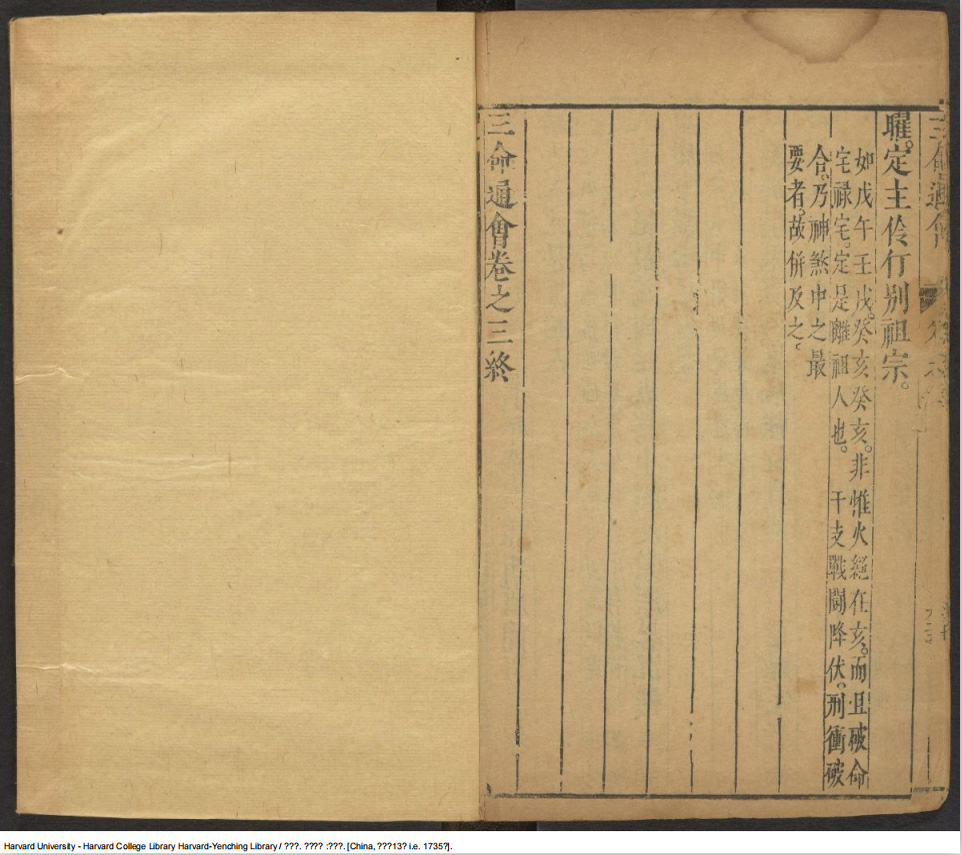 曜。定主伶仃別祖宗。
如戊午壬戌。癸亥癸亥。非惟火絕在亥。而且破命
宅祿宅。定是離祖人也。 干支戰鬭降伏。刑衝破
合。乃神煞中之最
要者。故併及之。
三命通會卷之三終
三命通會
Harvard University - Harvard College Library Harvard-Yenching Library / ???. ???? :???. [China, ???13? i.e. 1735?].